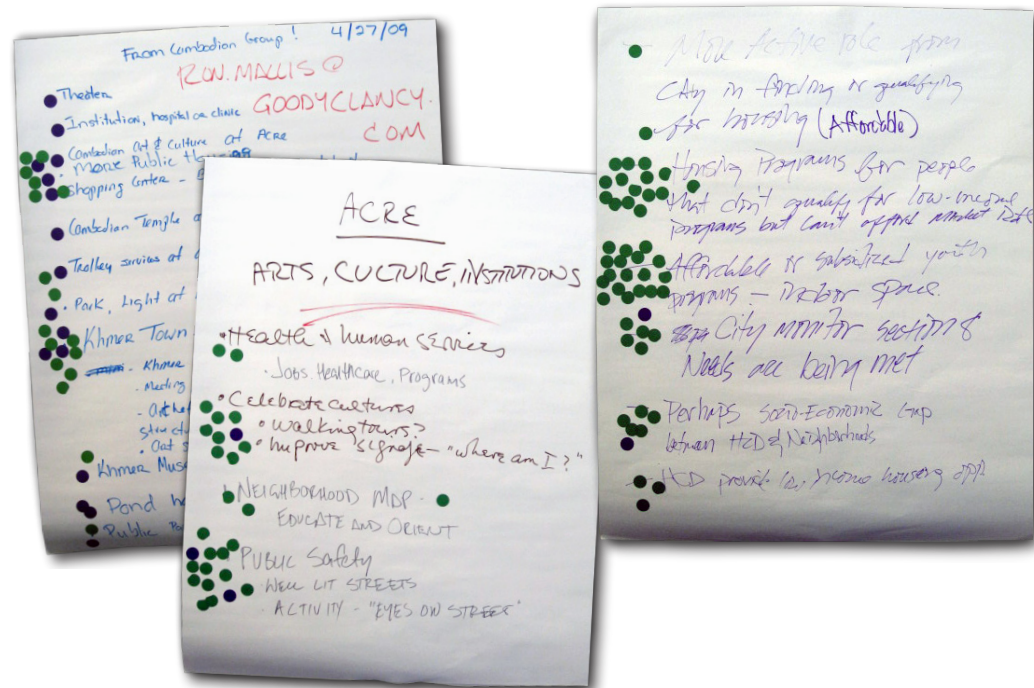 From Combodian Group! 4/27/09
RON.MALLIS@
GOODYCLANCY.
COM
Theater
Institution, hospital or clinic
Combodian art & culture at Acre
more Public
Shopping Center -
Combodian Temple
Trolley services at
Park, Light at
Khmer Town
- Khmer
- Meeting
Khmer Muse
Pond
Public
ACRE
ARTS, CULTURE, INSTITUTIONS
• Health & human services
• Jobs, Healthcare, Programs
• Celebrate cultures
• walking tours?
• Improve signage - "where am I?"
• NEIGHBORHOOD MAP -
EDUCATE AND ORIENT
• PUBLIC Safety
• WELL LIT STREETS
• ACTIVITY - "EYES ON STREET"
- More Active role from
City in finding or qualifying
for housing (Affordable)
- Housing Programs for people
that don't qualify for low-income
programs but can't afford market rate
- Affordable or subsidized youth
programs - indoor space.
City monitor section 8
Needs are being met
- Perhaps Socio-Economic Gap
between HCD & Neighborhoods
- HCD provide income housing opp.